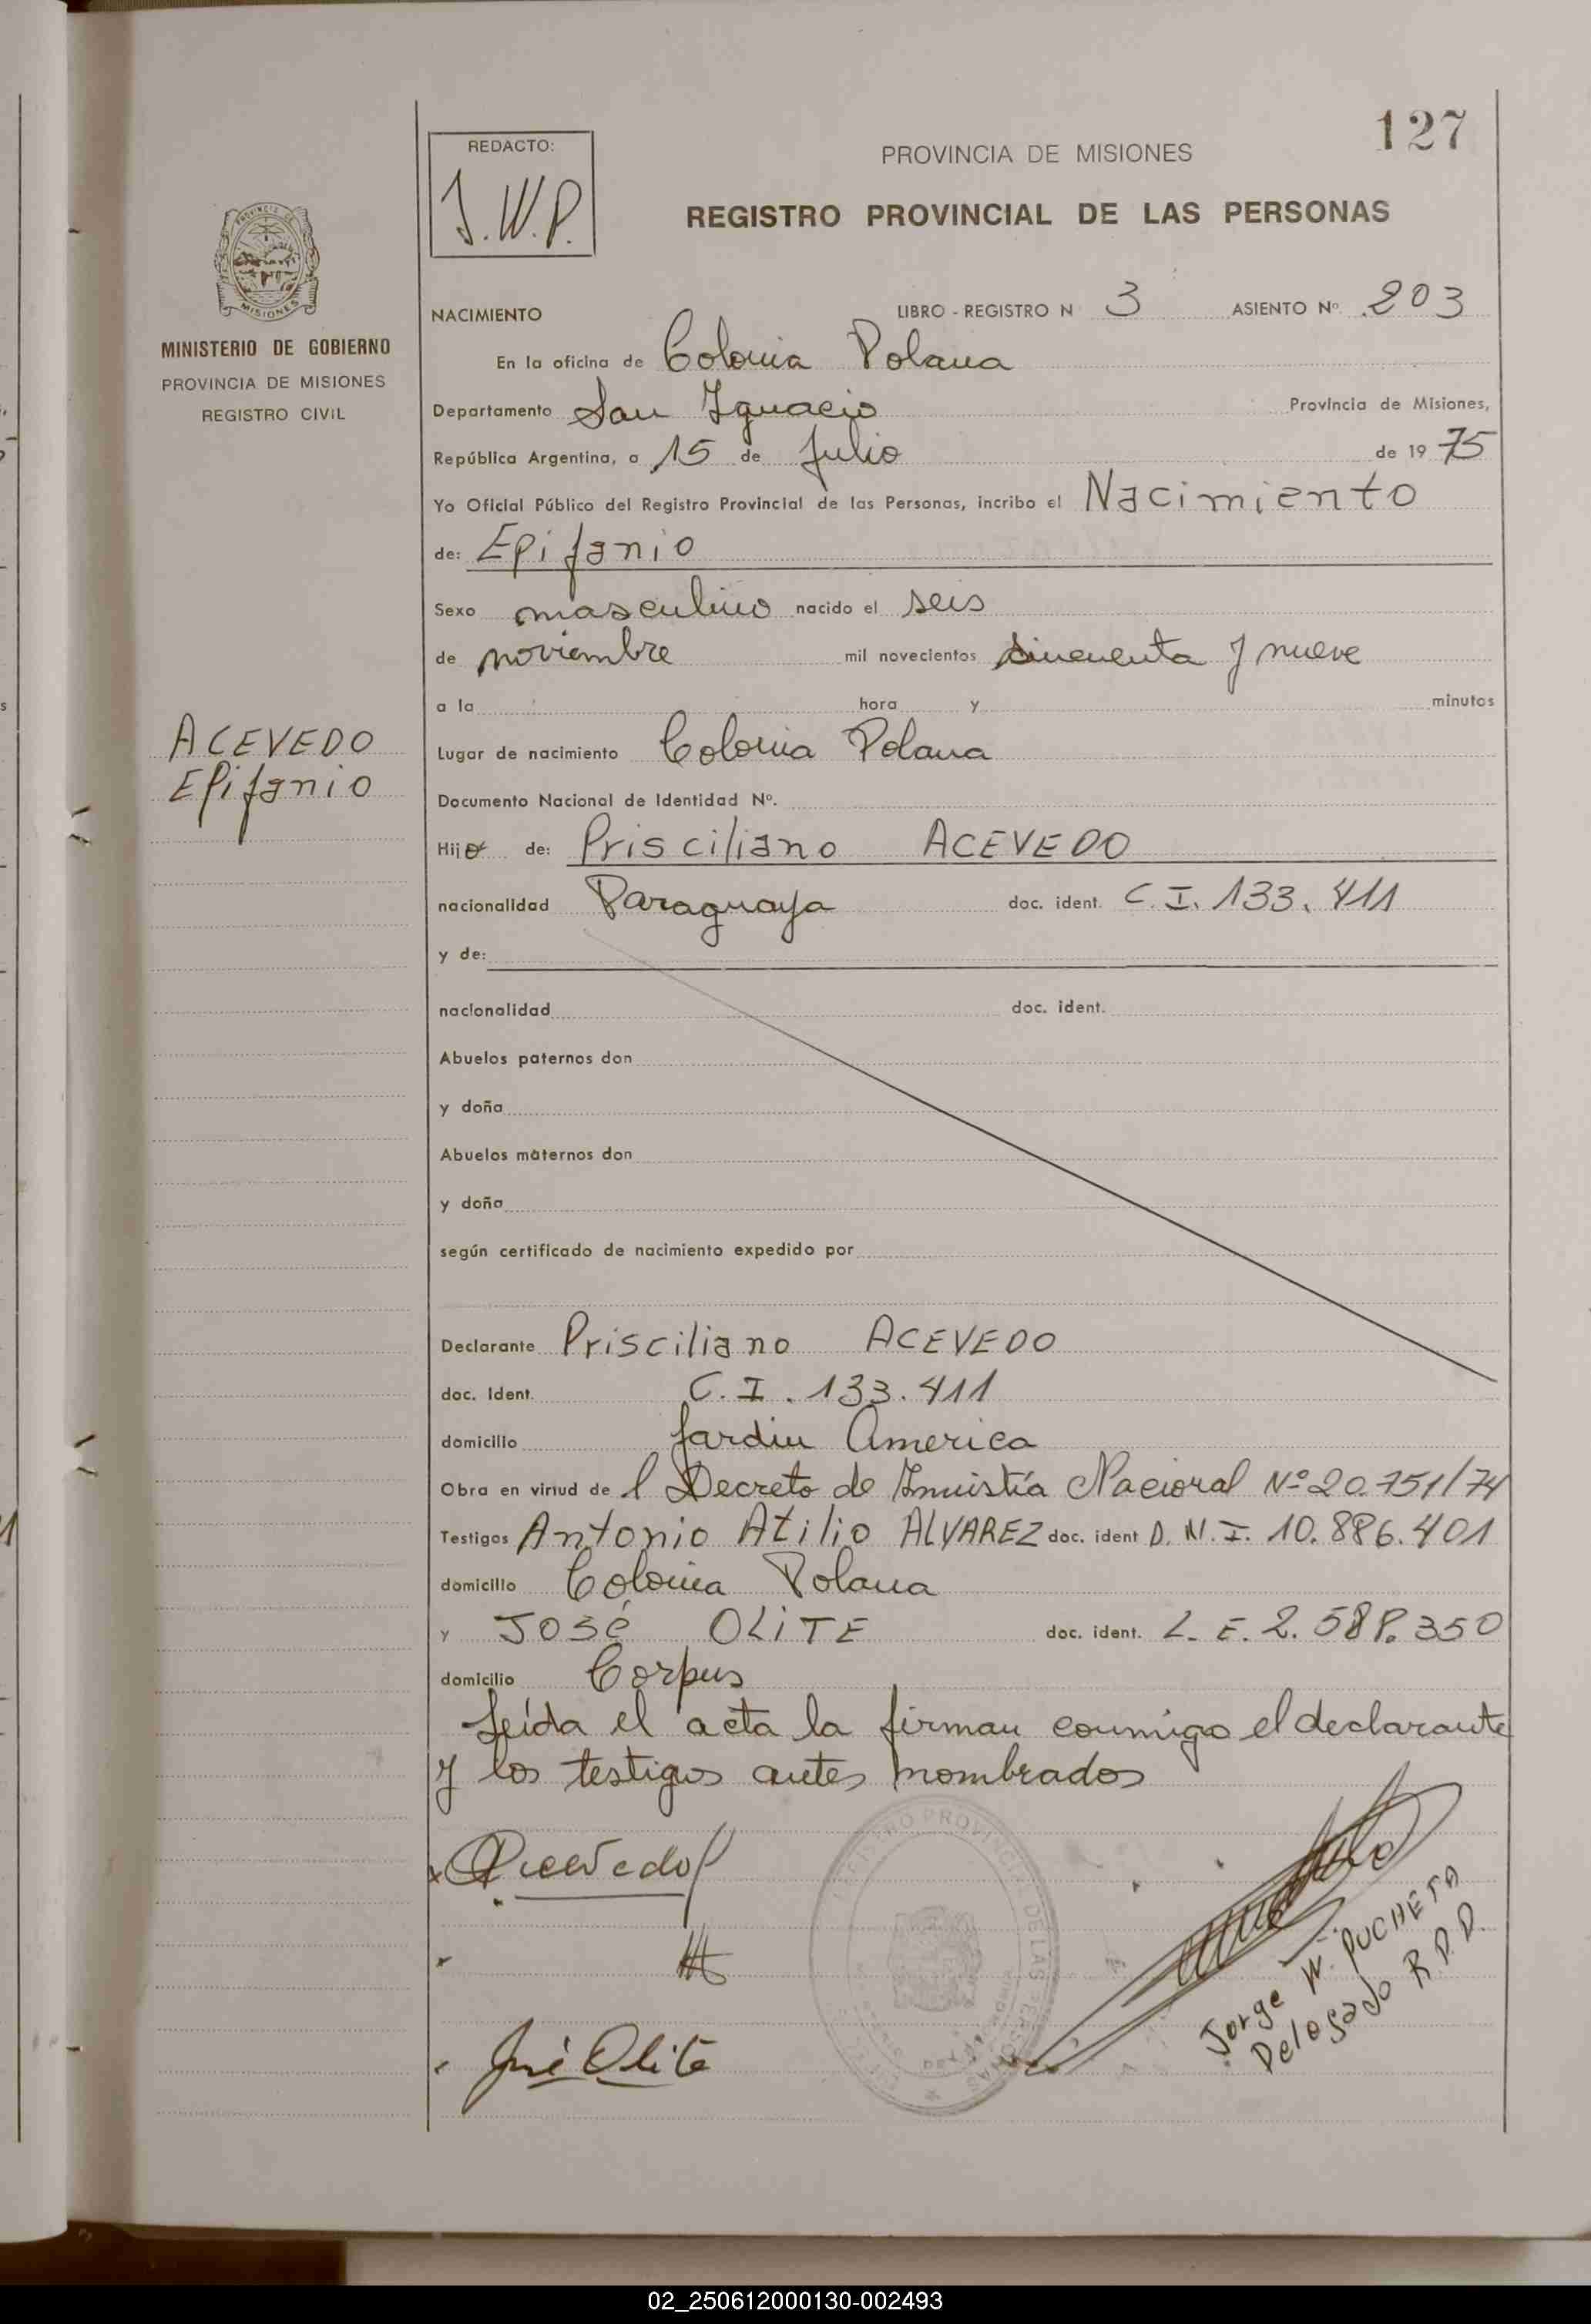 127
REDACTO:
J.W.P.
PROVINCIA DE MISIONES
REGISTRO PROVINCIAL DE LAS PERSONAS
MINISTERIO DE GOBIERNO
PROVINCIA DE MISIONES
REGISTRO CIVIL
NACIMIENTO LIBRO - REGISTRO N 3 ASIENTO Nº 203
En la oficina de Colonia Polana
Departamento San Ignacio Provincia de Misiones,
República Argentina, a 15 de Julio de 19 75
Yo Oficial Público del Registro Provincial de las Personas, incribo el Nacimiento
de: Epifanio
Sexo masculino nacido el seis
de noviembre mil novecientos sincuenta y nueve
a la hora y minutos
ACEVEDO
Epifanio
Lugar de nacimiento Colonia Polana
Documento Nacional de Identidad Nº.
Hijo de: Prisciliano ACEVEDO
nacionalidad Paraguaya doc. ident. C.I. 133.411
y de:
nacionalidad doc. ident.
Abuelos paternos don
y doña
Abuelos maternos don
y doña
según certificado de nacimiento expedido por
Declarante Prisciliano ACEVEDO
doc. Ident. C.I. 133.411
domicilio Jardin America
Obra en virtud de l Decreto de Nacional Nº 20.751/74
Testigos Antonio Atilio ALVAREZ doc. ident D.N.I. 10.886.401
domicilio Colonia Polana
y José OLITE doc. ident. L.E. 2.58 .350
domicilio Corpus
Leída el acta la firman conmigo el declarante
y los testigos antes nombrados
Acevedo
José Olite
Jorge W. PUCHETA
Delegado R.P.P.
REGISTRO PROVINCIAL DE LAS PERSONAS
02_250612000130-002493